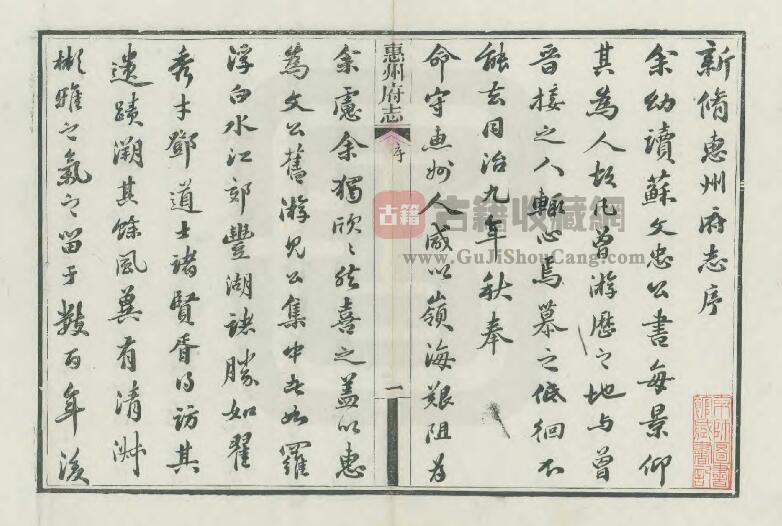 新脩惠州府志序
余幼讀蘇文忠公書每景仰
其為人故凡曾游歷之地与曾
晉接之人輒心焉慕之低徊不
能去同治九年秋奉
命守惠州人咸以嶺海艱阻為
惠州府志
序
一
余慮余獨欣欣然喜之盖以惠
為文公舊游見公集中者如羅
浮白水江郊豐湖諸勝如翟
秀才鄧道士諸賢胥得訪其
遺蹟溯其餘風冀有清淑
彬雅之氣之留于數百年後
古籍
古籍收藏網
www.GuJiShouCang.com